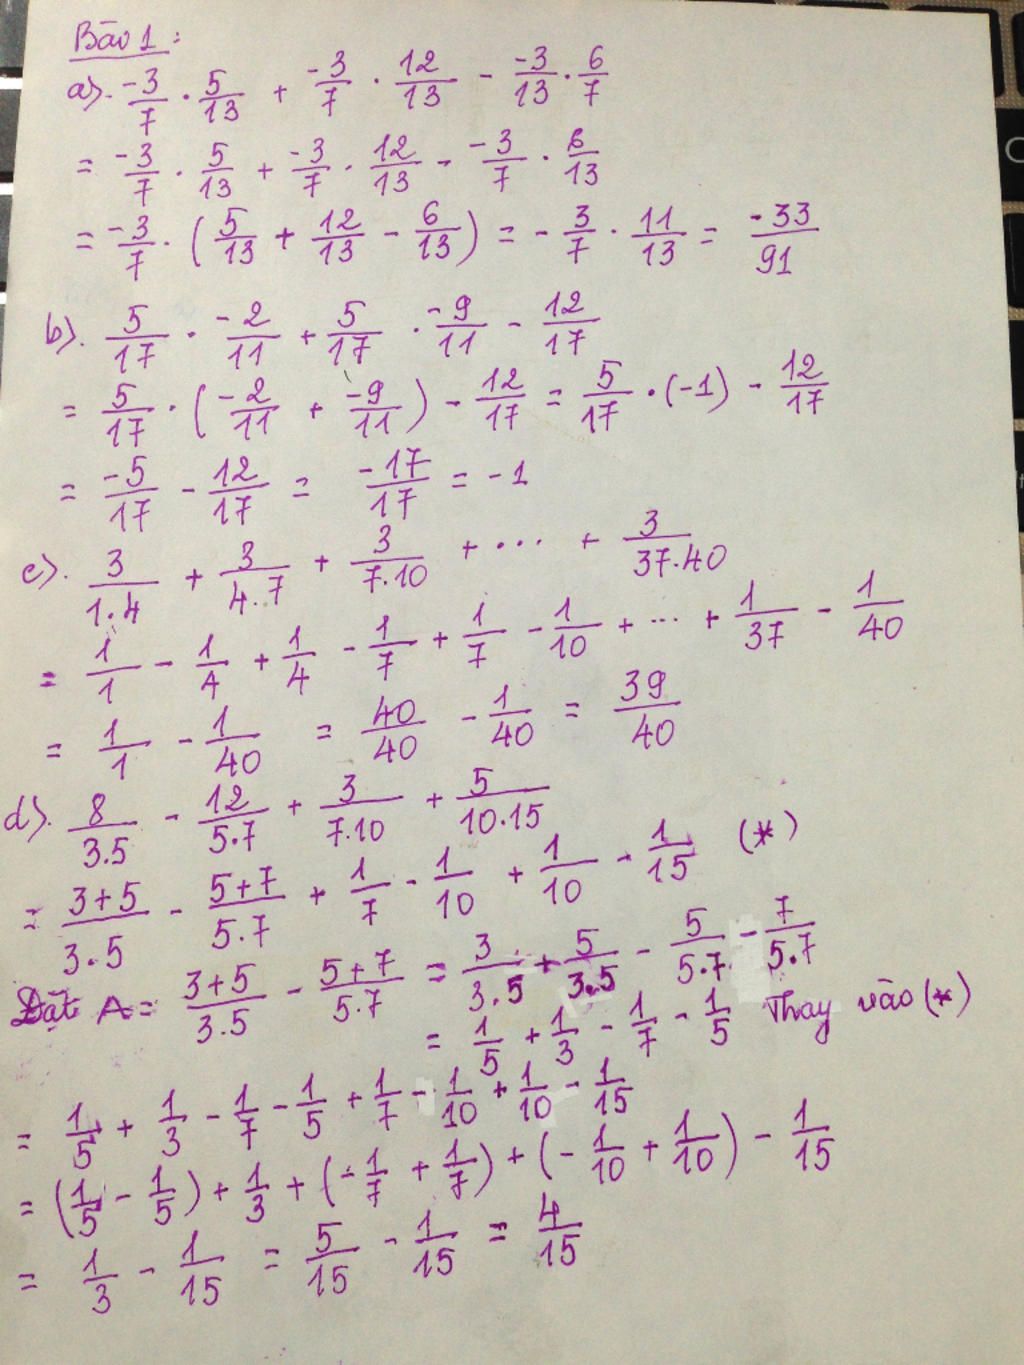 Bài 1:
a). -3/7 · 5/13 + -3/7 · 12/13 - -3/13 · 6/7
= -3/7 · 5/13 + -3/7 · 12/13 - -3/7 · 6/13
= -3/7 · (5/13 + 12/13 - 6/13) = - 3/7 · 11/13 = -33/91
b). 5/17 · -2/11 + 5/17 · -9/11 - 12/17
= 5/17 · (-2/11 + -9/11) - 12/17 = 5/17 · (-1) - 12/17
= -5/17 - 12/17 = -17/17 = -1
c). 3/1.4 + 3/4.7 + 3/7.10 + ... + 3/37.40
= 1/1 - 1/4 + 1/4 - 1/7 + 1/7 - 1/10 + ... + 1/37 - 1/40
= 1/1 - 1/40 = 40/40 - 1/40 = 39/40
d). 8/3.5 - 12/5.7 + 3/7.10 + 5/10.15
= 3+5/3.5 - 5+7/5.7 + 1/7 - 1/10 + 1/10 - 1/15 (*)
Đặt A = 3+5/3.5 - 5+7/5.7 = 3/3.5 + 5/3.5 - 5/5.7 - 7/5.7
= 1/5 + 1/3 - 1/7 - 1/5 Thay vào (*)
= 1/5 + 1/3 - 1/7 - 1/5 + 1/7 - 1/10 + 1/10 - 1/15
= (1/5 - 1/5) + 1/3 + (-1/7 + 1/7) + (-1/10 + 1/10) - 1/15
= 1/3 - 1/15 = 5/15 - 1/15 = 4/15